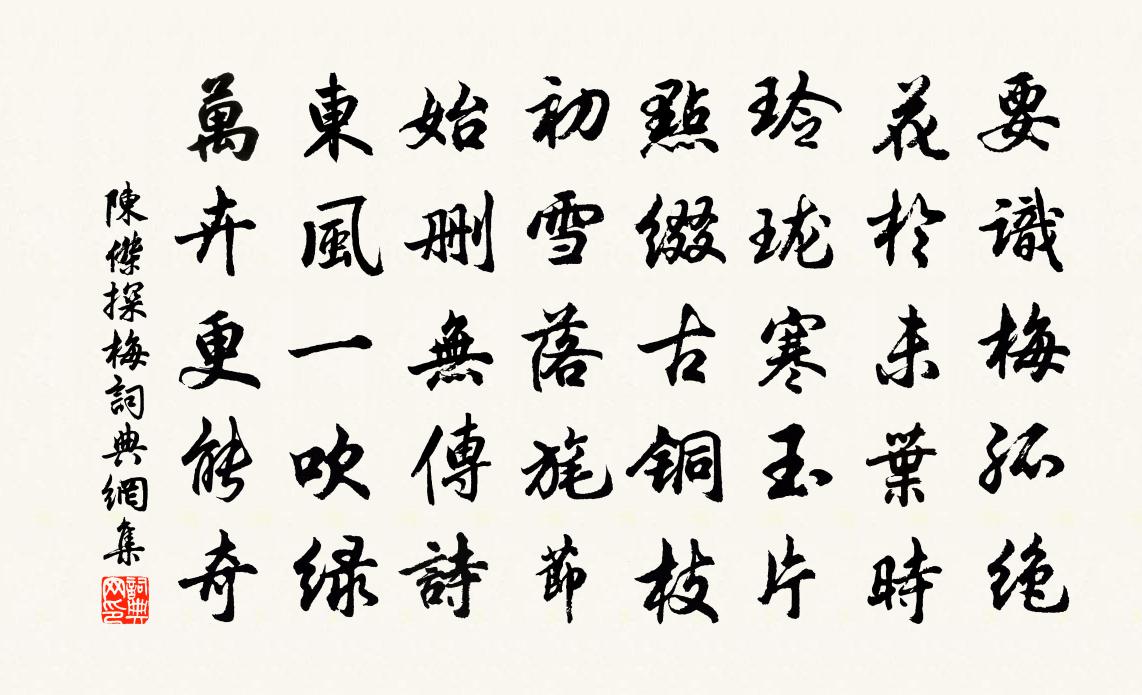 要識梅孤絕
花於未葉時
玲瓏寒玉片
點綴古銅枝
初雪落旄節
始刪無傳詩
東風一吹綠
萬卉更能奇
陳傑探梅詞典網集
詞典网印